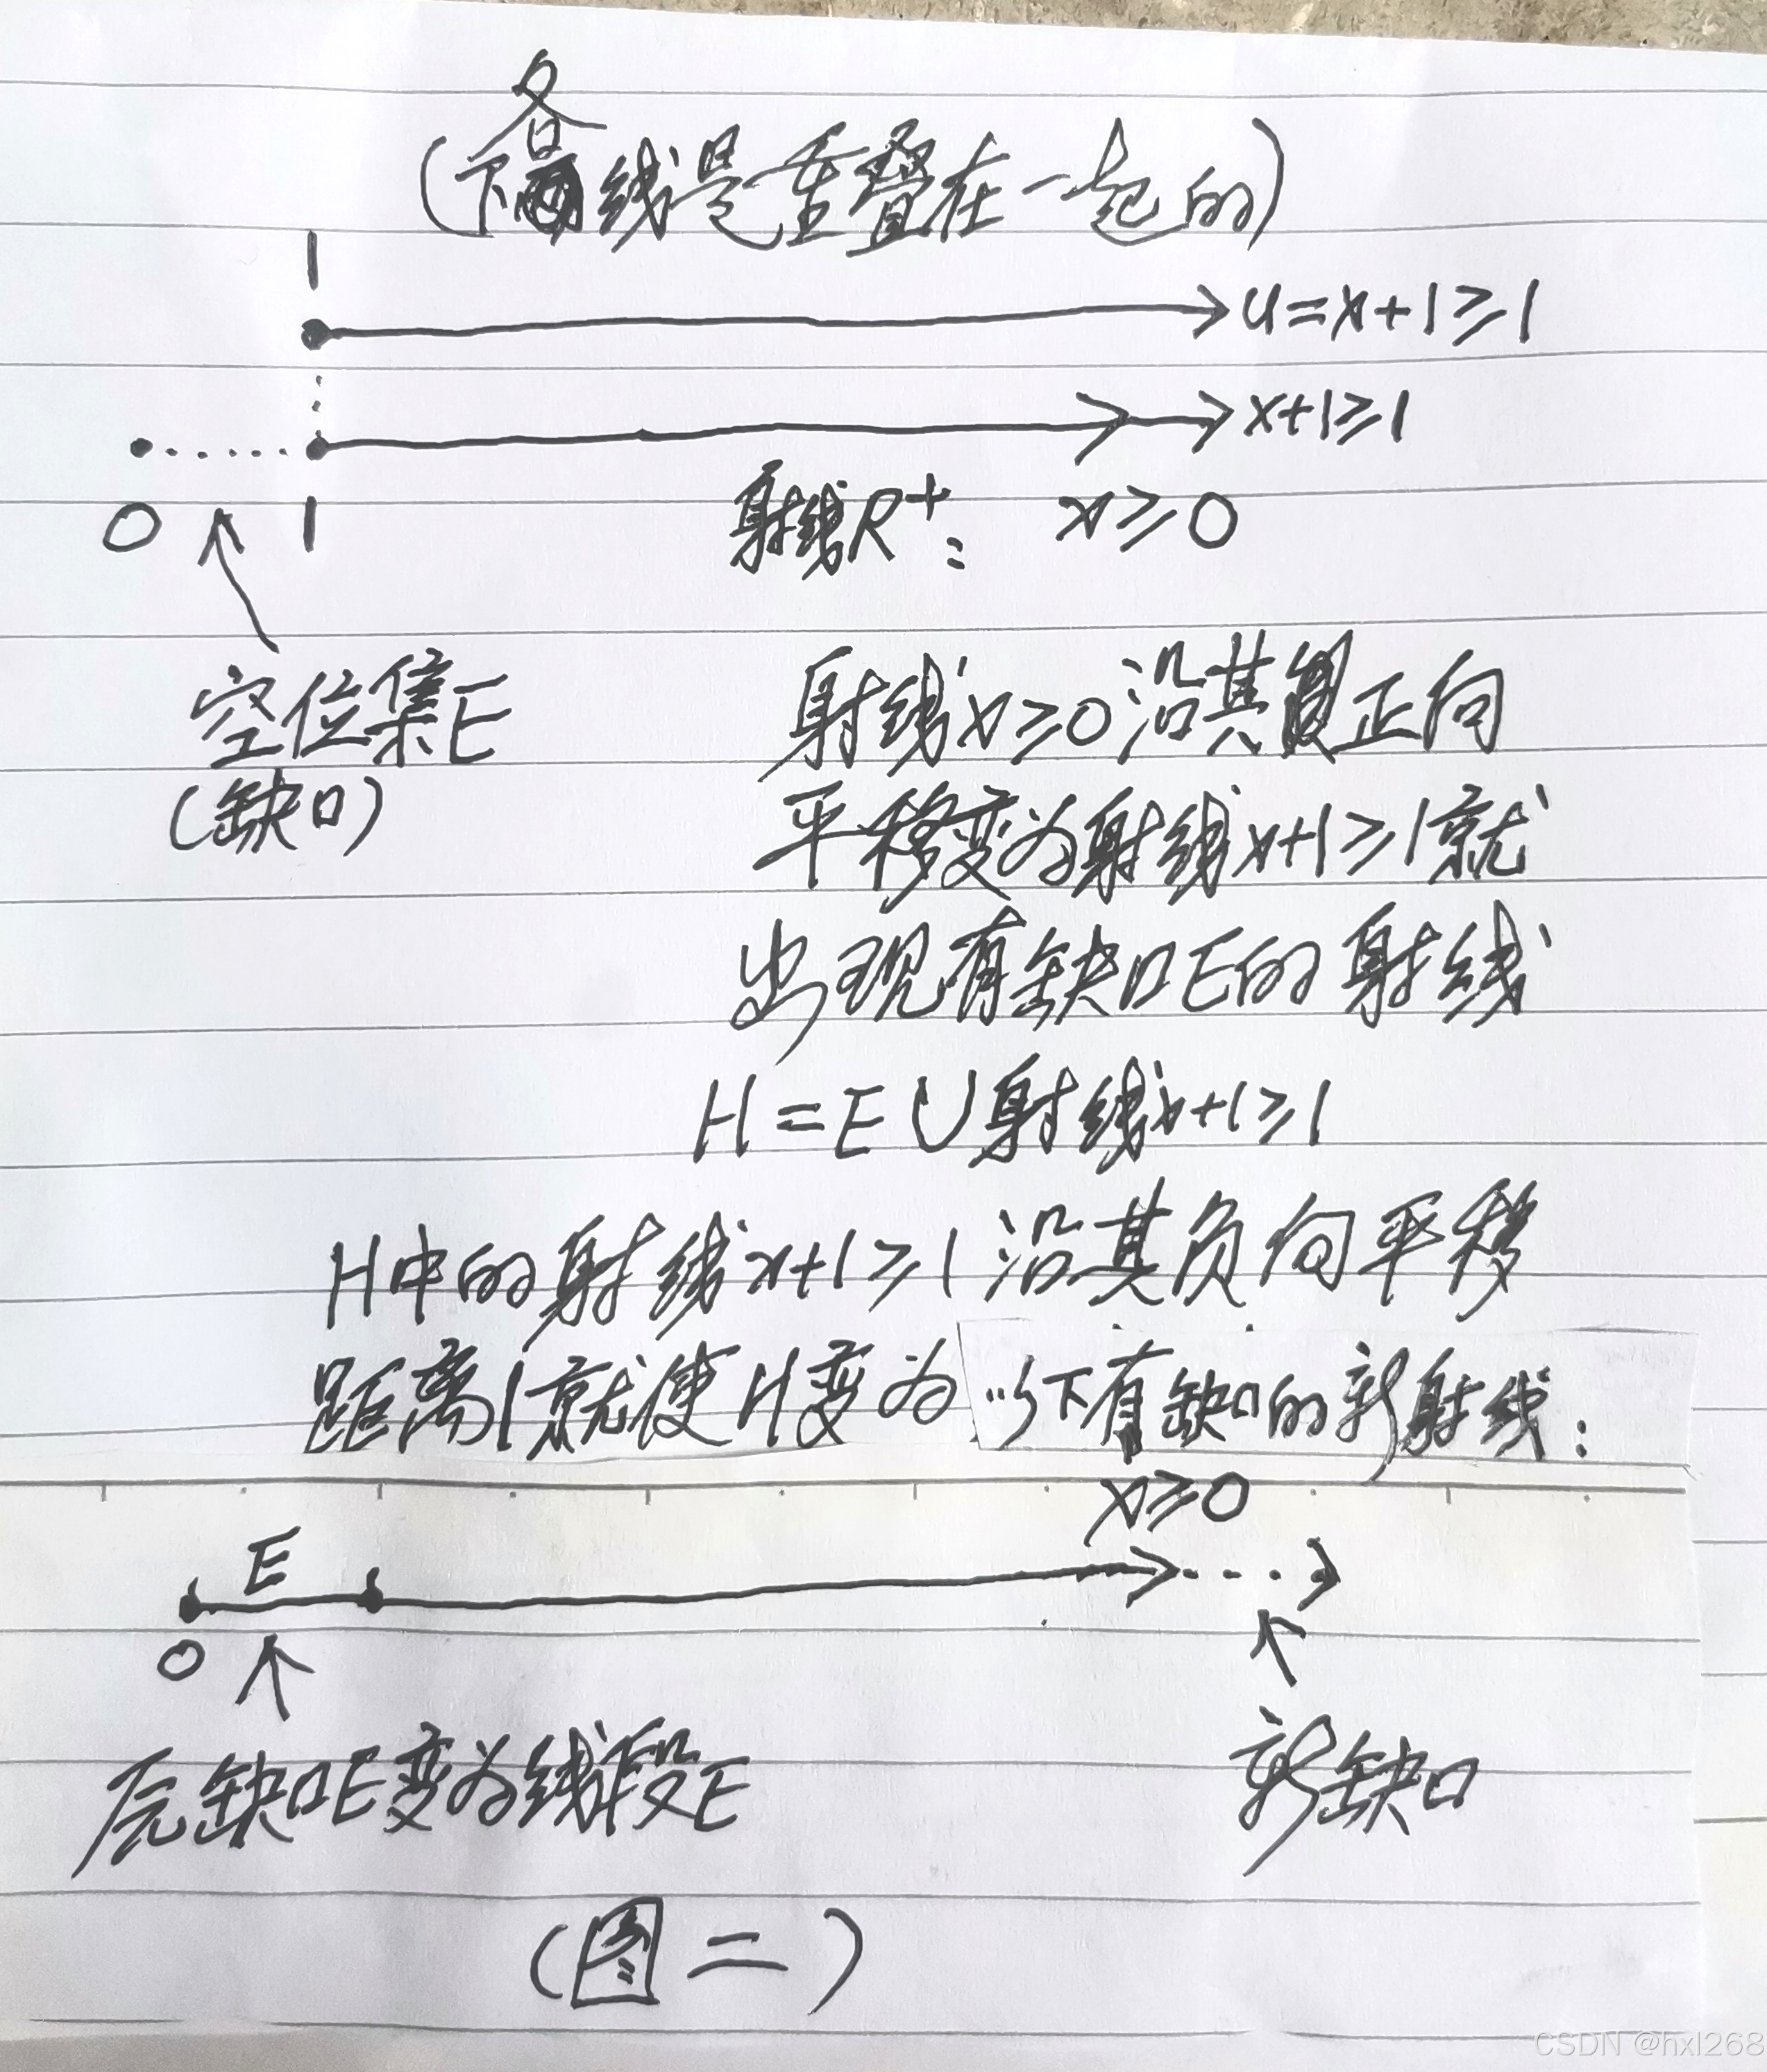 (下各线是重叠在一起的)
1
u=x+1≥1
x+1≥1
0 1
射线R⁺: x≥0
空位集E
(缺口)
射线x≥0沿其正向
平移变为射线x+1≥1就
出现有缺口E的射线
H=E∪射线x+1≥1
H中的射线x+1≥1沿其负向平移
距离1就使H变为以下有缺口的新射线:
x≥0
E
0
原缺口E变为线段E
新缺口
(图二)
CSDN @hxl268